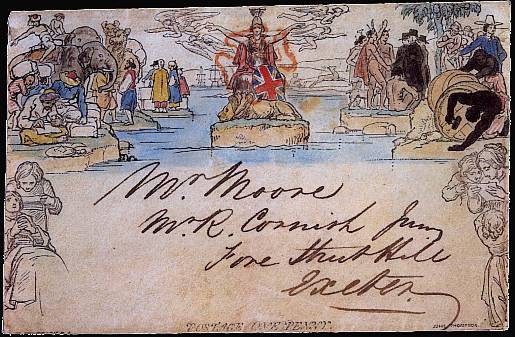 Mr Moore
Mr R. Cornish Junr
Fore Street Hill
Exeter
POSTAGE ONE PENNY.
JOHN THOMPSON